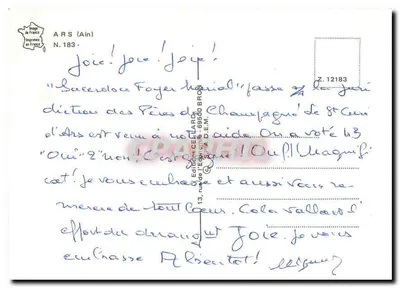 Image
de France
Imprimé
en France
ARS (Ain)
N. 183
Joie! Joie! Joie!
Z. 12183
"Sacerdoce Foyer Marial" passe la juri
diction des Pères de Champagne! Le St Curé
d'Ars est venu à notre aide On a voté 43
"Oui" 2 "non" C'est signé! Ouf! Magnifi
cat! je vous embrasse et aussi vous re
mercie de tout Coeur. Cela vallait l'
effort du Joie. je vous
embrasse A bientôt!
Editions CELLARD
13, rue de l' - 69500 BRON